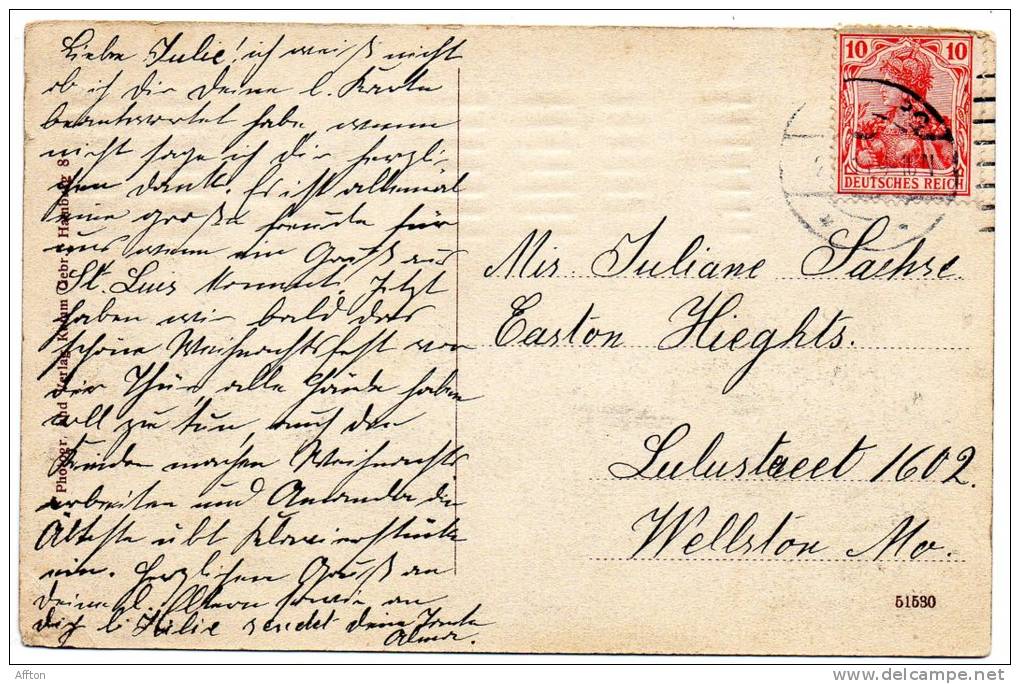 Liebe Julie! ich weiß nicht
ob ich dir deine l. Karte
beantwortet habe, wenn
nicht sage ich dir herzli-
chen dank. Es ist allemal
eine große freude für
uns wenn ein Gruß aus
St. Luis kommt. Jetzt
haben wir bald das
schöne Weihnachtsfest vor
der Thür, alle Hände haben
voll zu tun, auch den
Kinder machen Weihnachts
arbeiten und Amanda die
Älteste übt Klavierstücke
ein. Herzlichen Gruß an
deine l. Eltern sowie an
dich l. Julie sendet deine Tante
Alma.
Photogr. und Verlag Knackstedt Gebr. Hamburg 8
10 10
DEUTSCHES REICH
Mis. Juliane Sachse
Easton Hieghts.
Lulustreet 1602.
Wellston Mo.
51530
Affton
delcampe.net